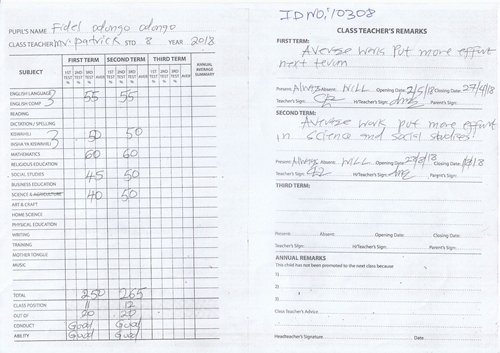 PUPIL'S NAME Fidel odongo odongo
CLASS TEACHER Mr patrick STD 8 YEAR 2018
SUBJECT FIRST TERM SECOND TERM THIRD TERM ANNUAL AVERAGE SUMMARY
1ST TEST % 2ND TEST % 3RD TEST % AVER 1ST TEST % 2ND TEST % 3RD TEST % AVER 1ST TEST % 2ND TEST % 3RD TEST % AVER
ENGLISH LANGUAGE
ENGLISH COMP 55 55
READING
DICTATION / SPELLING
KISWAHILI 50 50
INSHA YA KISWAHILI
MATHEMATICS 60 60
RELIGIOUS EDUCATION
SOCIAL STUDIES 45 50
BUSINESS EDUCATION
SCIENCE & AGRICULTURE 40 50
ART & CRAFT
HOME SCIENCE
PHYSICAL EDUCATION
WRITING
TRAINING
MOTHER TONGUE
MUSIC
TOTAL 250 265
CLASS POSITION 11 12
OUT OF 20 20
CONDUCT Good Good
ABILITY Good Good
ID NO: 10308
CLASS TEACHER'S REMARKS
FIRST TERM:
Averse work put more effort
next term
Present: Always Absent: NILL Opening Date: 2/5/18 Closing Date: 27/4/18
Teacher's Sign: H/Teacher's Sign: Parent's Sign:
SECOND TERM:
Averse work put more effort
in science and social studies
Present: Always Absent: NILL Opening Date: Closing Date:
Teacher's Sign: H/Teacher's Sign: Parent's Sign:
THIRD TERM:
Present: Absent: Opening Date: Closing Date:
Teacher's Sign: H/Teacher's Sign: Parent's Sign:
ANNUAL REMARKS
This child has not been promoted to the next class because
1)
2)
3)
Class Teacher's Advice
Headteacher's Signature Date